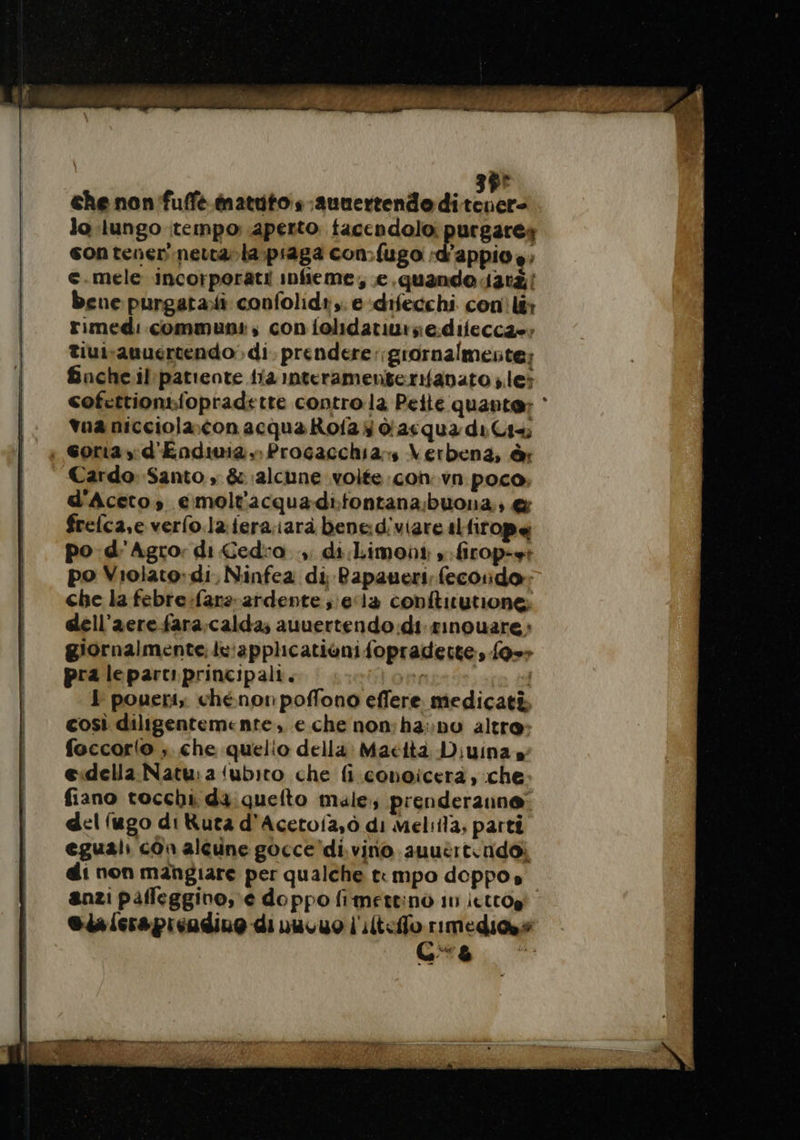 che non fuſſe matuto, auuertendo di tener-
lo lungo tempo aperto facendolo purgare,
con tener' netta la piaga con ſugo d'appio,
e mele incorporati inſieme, e quando ſarà
bene purgata ſi conſolidi, e diſecchi con li
rimedi communi, con ſolidatiui, e diſecca-
tiui auuertendo di prendere giornalmente,
finche il patiente ſia interamente riſanato, le
cofettioni ſopradette contro la Peſte quanto
vna nicciola, con acqua Roſa, ò acqua di Ci-
coria, d'Endiuia, Procacchia, Verbena, ò
Cardo Santo, & alcune volte con vn poco
d'Aceto, e molt'acqua di fontana buona, e
freſca, e verſo la ſera ſarà bene d'viare il ſirop
po d'Agro di Cedro, di Limoni, ſirop-
po Violato di Ninfea di Papaueri, ſecondo
che la febre ſara ardente, e la conſtitutione
dell'aere ſara calda, auuertendo di rinouare
giornalmente le applicationi ſopradette, ſo-
pra le parti principali.
I poueri, che non poſſono eſſere medicati,
così diligentemente, e che non hanno altro
ſoccorſo, che quello della Maeſtà Diuina,
e della Natura ſubito che ſi conoicerà, che
ſiano tocchi da queſto male, prenderanno
del ſugo di Ruta d'Acetoſa, ò di Meliſſa, parti
eguali con alcune gocce di vino auuertendo,
di non mangiare per qualche tempo doppo,
anzi paſſeggino, e doppo ſi mettino in letto,
e la ſera prendino di nuouo l'iſteſſo rimedio,